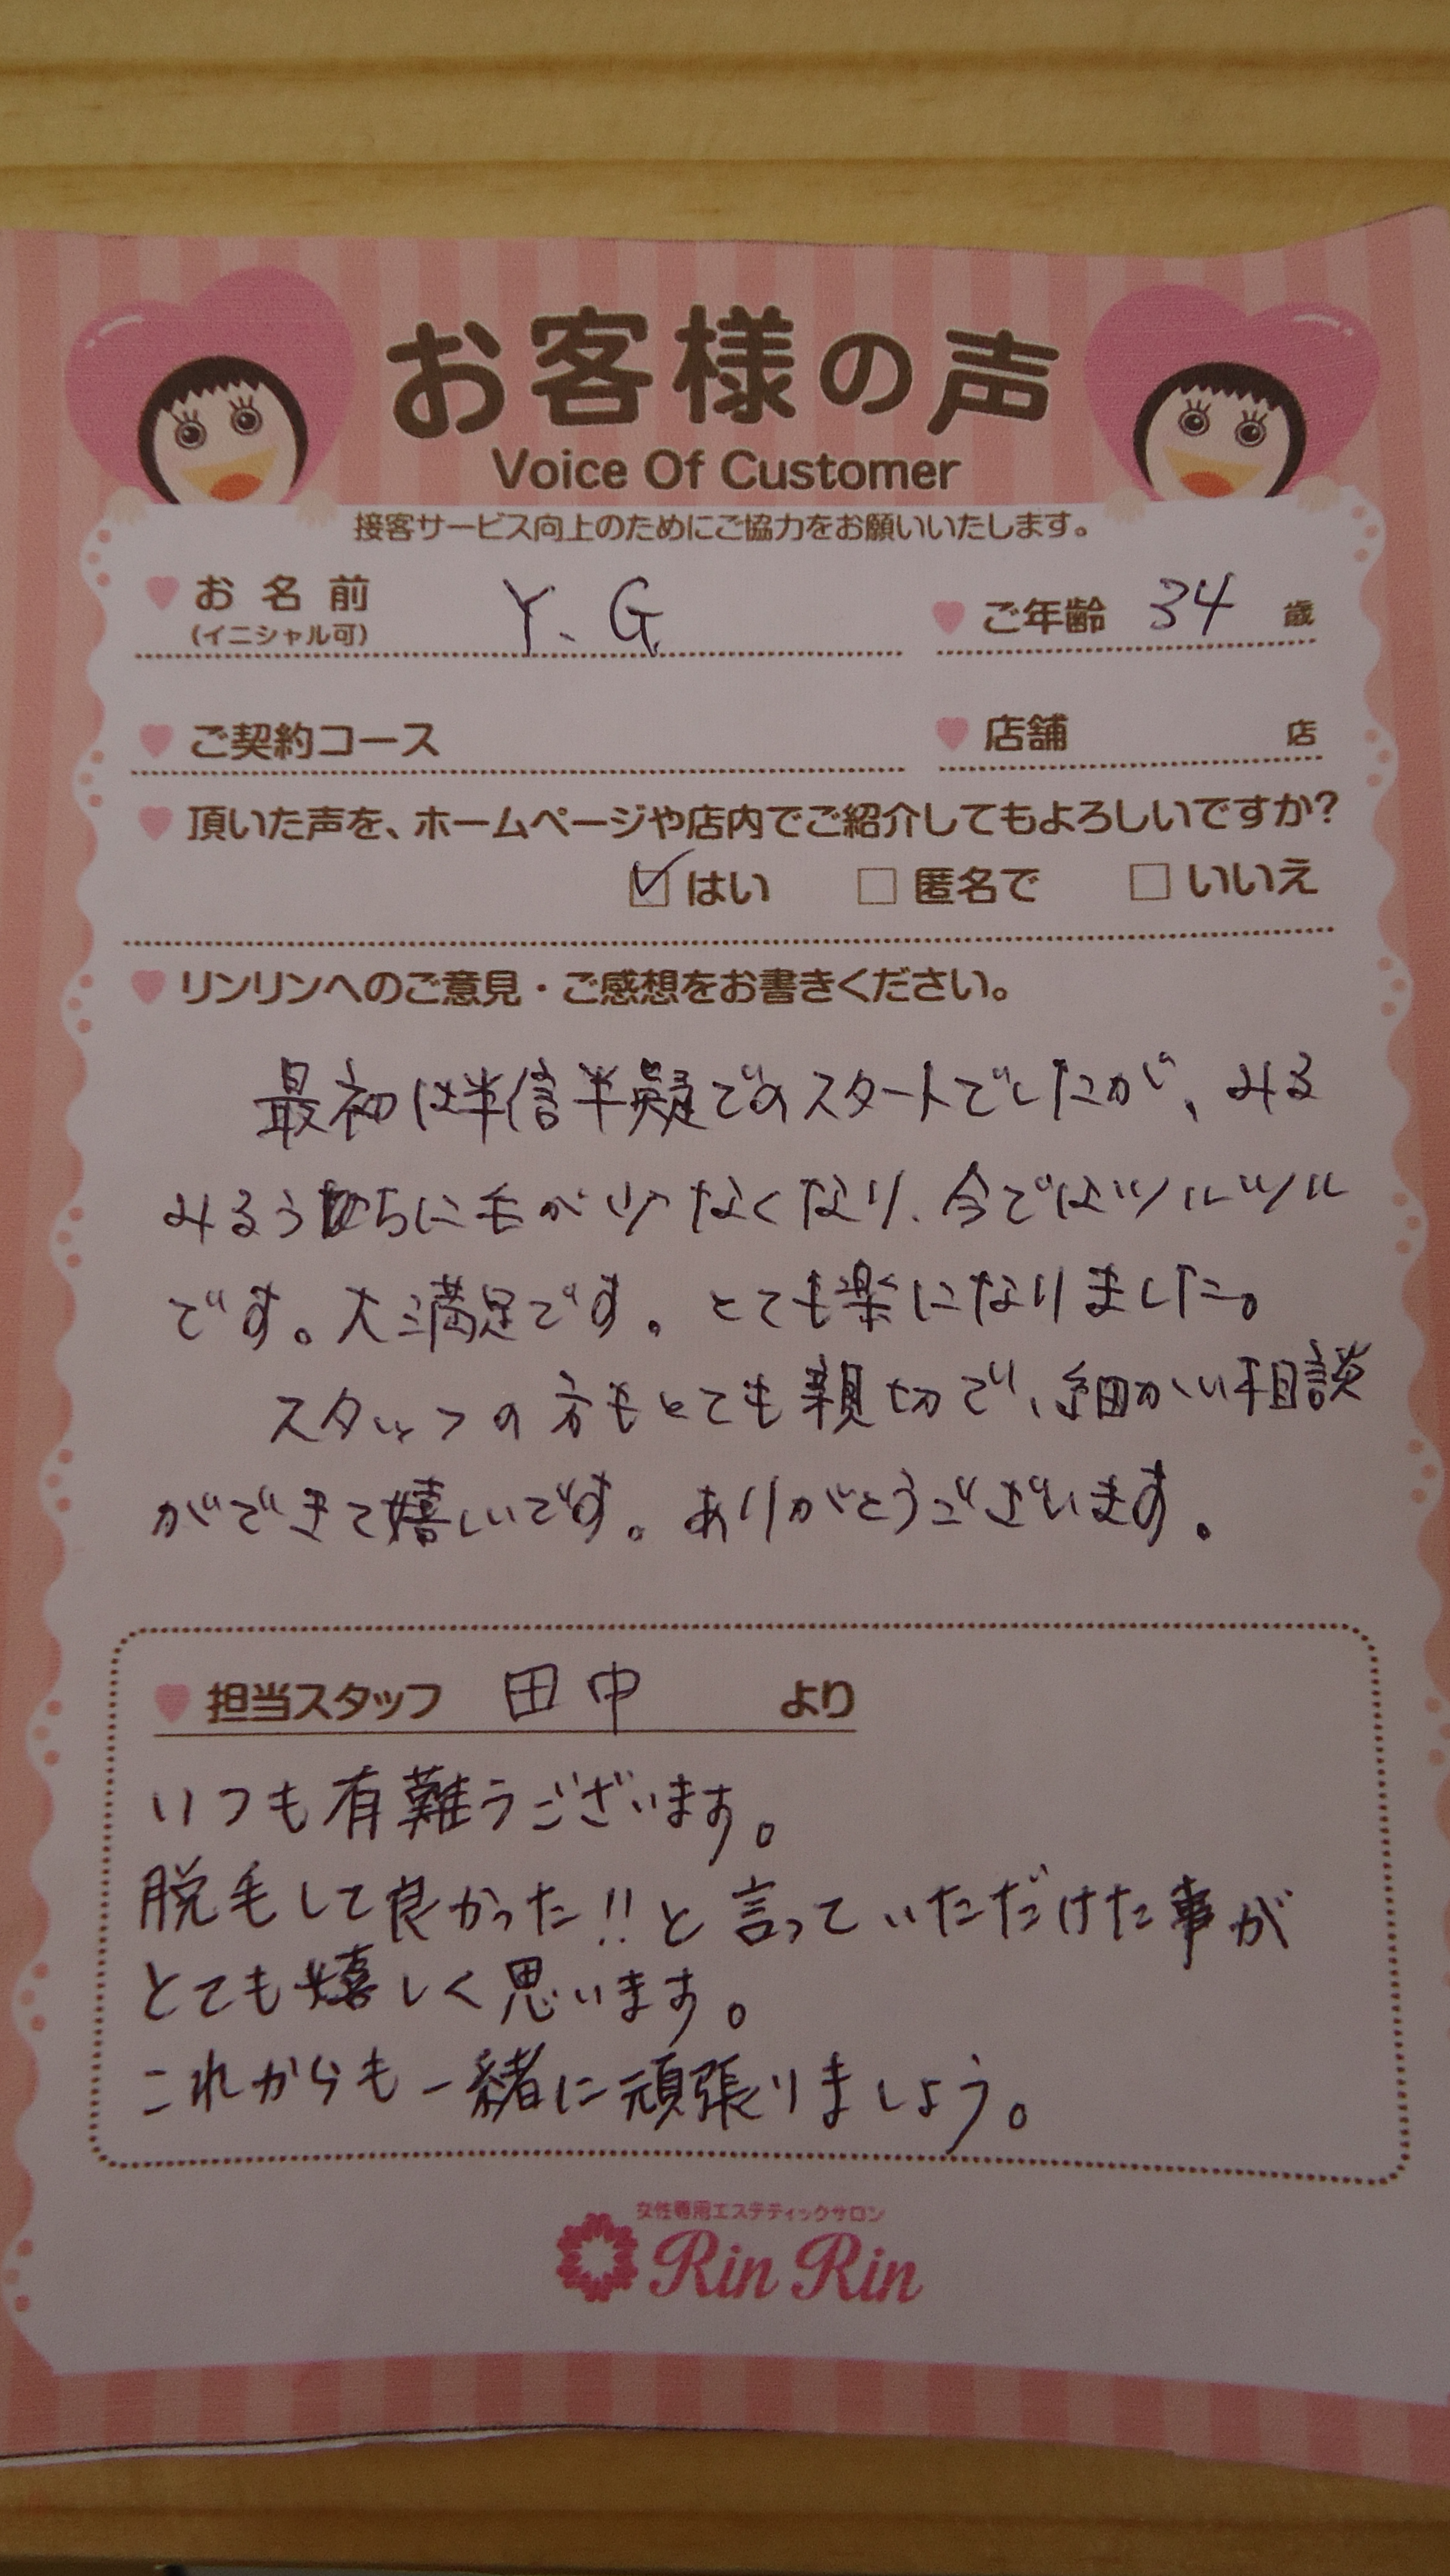 お客様の声
Voice Of Customer
接客サービス向上のためにご協力をお願いいたします。
お名前 Y. G. ご年齢 34 歳
(イニシャル可)
ご契約コース 店舗 店
頂いた声を、ホームページや店内でご紹介してもよろしいですか?
はい 匿名で いいえ
リンリンへのご意見・ご感想をお書きください。
最初は半信半疑でのスタートでしたが、みる
みるうちに毛が少なくなり、今ではツルツル
です。大満足です。とても楽になりました。
スタッフの方もとても親切で、細かい相談
ができて嬉しいです。ありがとうございます。
担当スタッフ 田中 より
いつも有難うございます。
脱毛して良かった!!と言っていただけた事が
とても嬉しく思います。
これからも一緒に頑張りましょう。
女性専用エステティックサロン
Rin Rin